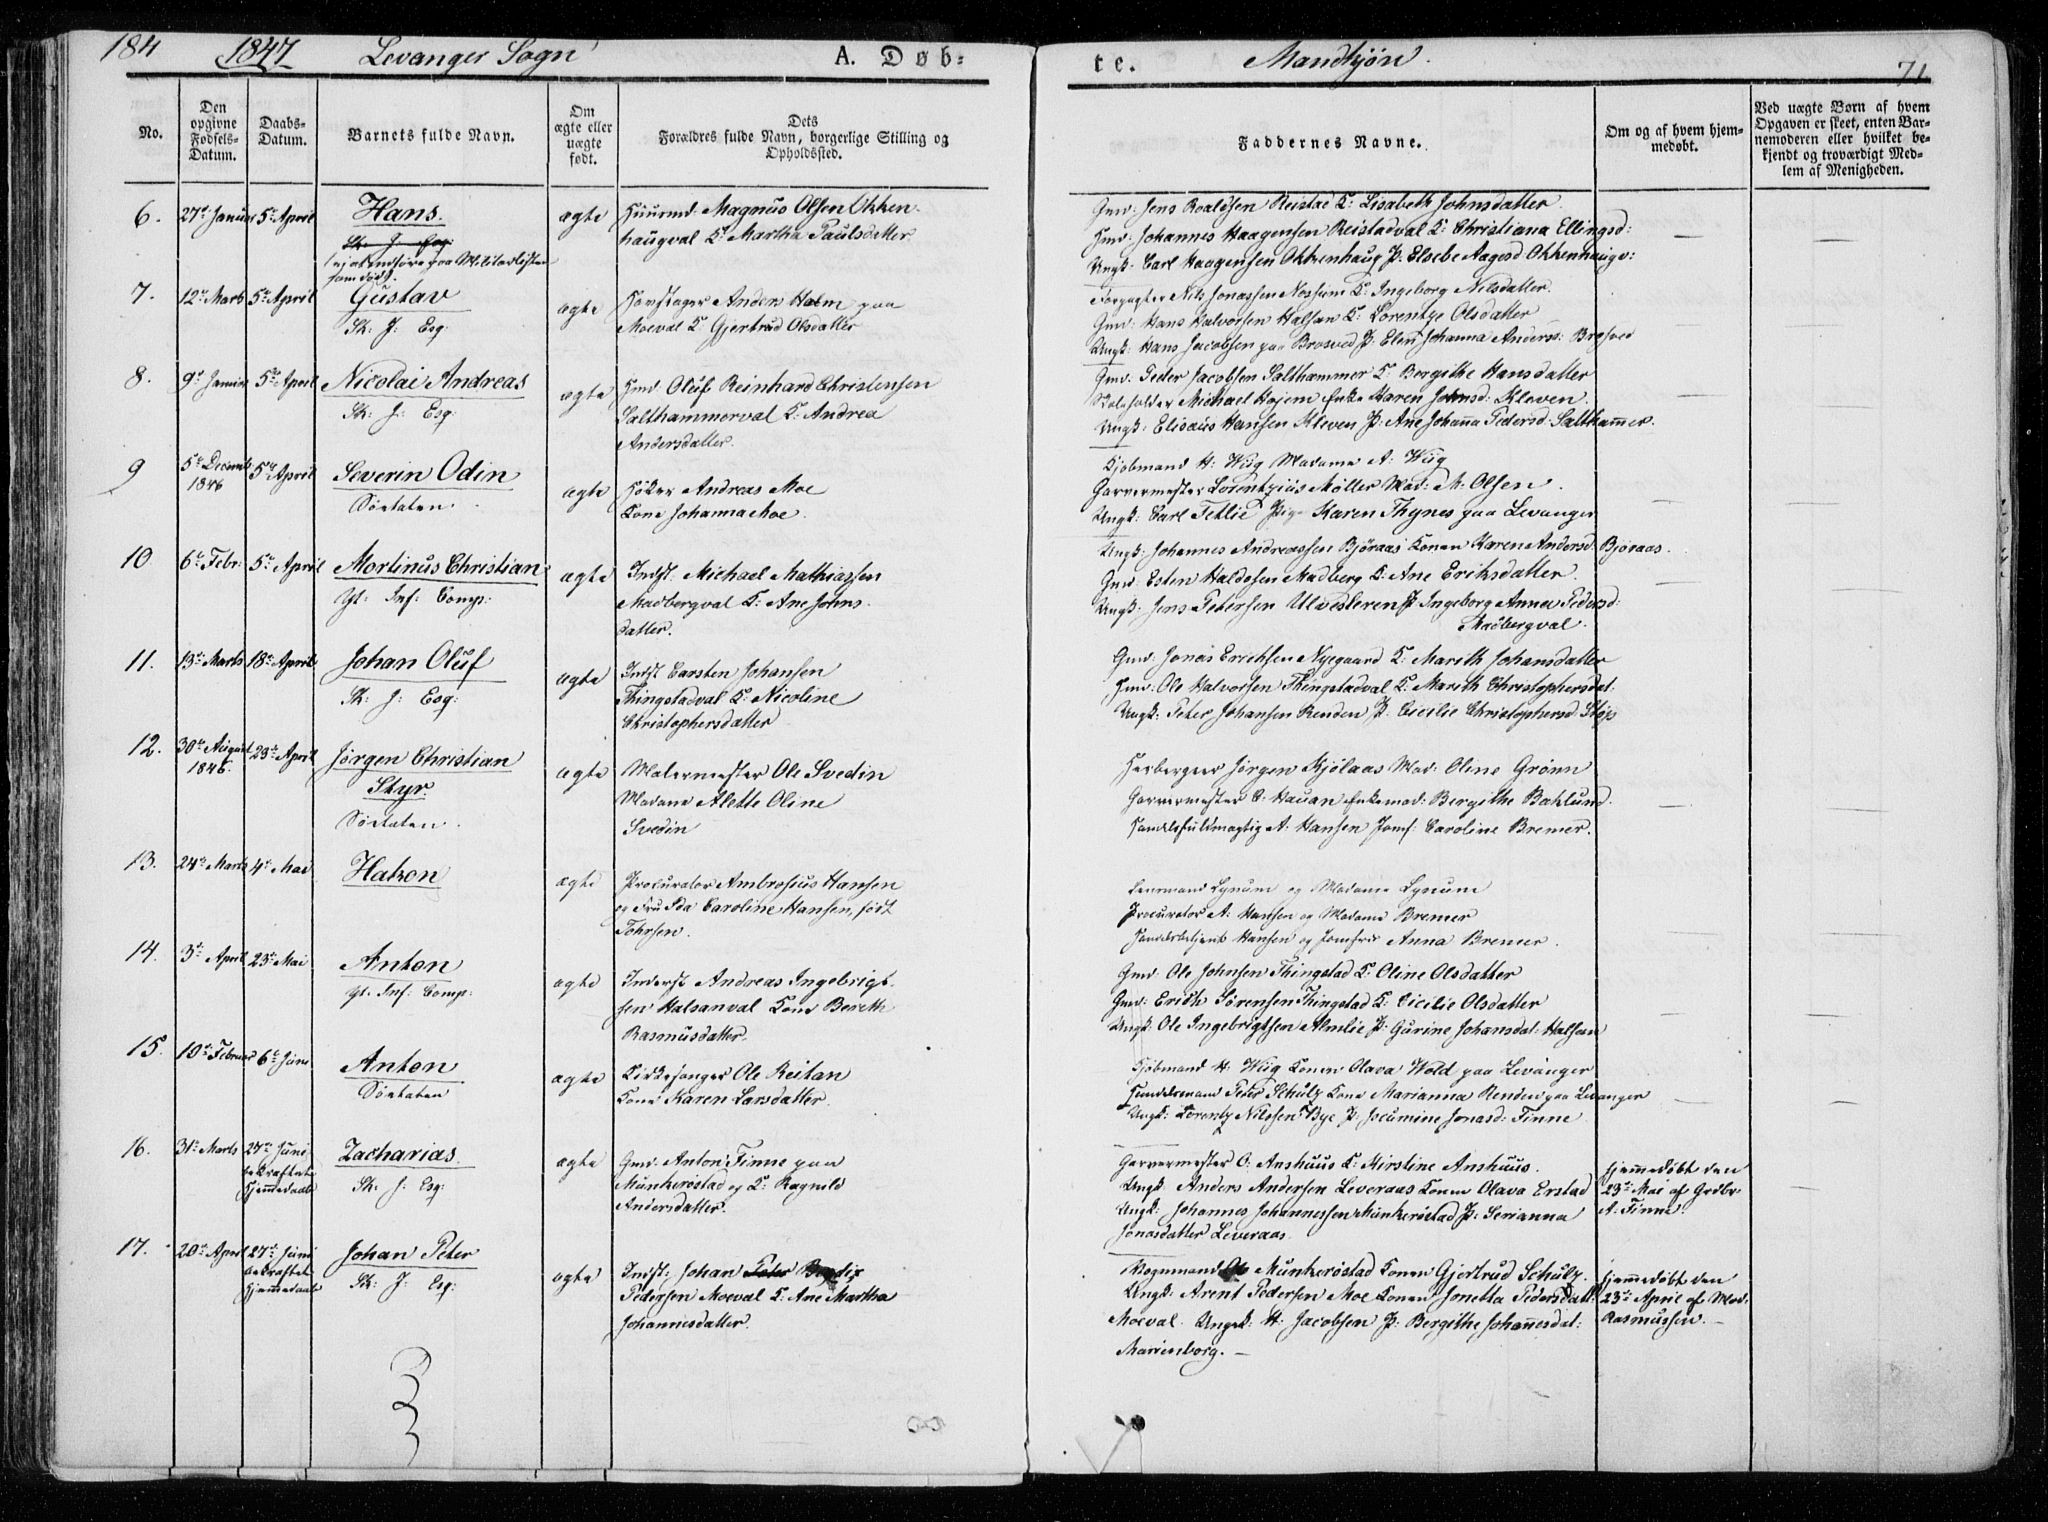 184 1847 Levanger Sogn A. Døb:
te. Mandkjøn. 71
No.
Den opgivne Fødsels-Datum.
Daabs-Datum.
Barnets fulde Navn.
Om ægte eller uægte født.
Dets Forældres fulde Navn, borgerlige Stilling og Opholdssted.
Faddernes Navne.
Om og af hvem hjemmedøbt.
Ved uægte Børn af hvem Opgaven er skeet, enten Barnemoderen eller hvilket bekjendt og troværdigt Medlem af Menigheden.
6. 27de Januar 5te April Hans. ægte Huusmd. Magnus Olsen Okken-
haugval K: Martha Paulsdatter.
Gmd: Jens Roaldsen Reistad K: Lisabeth Johnsdatter.
Hmd: Johannes Haagensen Reistadval K: Christiana Ellingsd:
Ungk: Carl Haagensen Okkenhaug P: Elsebe Aagesd Okkenhaugv:
7. 12te Marts 5te April Gustav ægte Anders Holm paa
Sk: J: Esq:
Moeval K: Gjertrud Olsdatter
Forpagter Nils Jonassen Nossum K: Ingeborg Nilsdatter.
Gmd: Hans Halvorsen Halsan K: Lorentze Olsdatter
Ungk: Hans Jacobsen paa Brosved P: Elen Johanna Anderss: Brosved
8. 9de Januar 5te April Nicolai Andreas ægte Hmd: Oluf Reinhard Christensen
Sk: J: Esq:
Salthammerval K: Andrea
Andersdatter.
Gmd: Peder Jacobsen Salthammer K: Bergithe Hansdatter
Michael Hojem Enke Karen Johnsd: Kleven.
Ungk: Elisæus Hansen Kleven P: Ane Johanna Pedersd: Salthammer.
9 5te Decemb 1846 5te April Severin Odin ægte Høker Andreas Moe
Søetaten.
Kone Johanna Moe.
Kjøbmand H: Wiig Madame A: Wiig
Garvermester Lorentzius Møller Mad: M: Olsen.
Ungk: Carl Tetlie Pige Karen Thynes paa Levanger
10 6te Febr: 5te April Mortinus Christian ægte Indst: Michael Mathiassen
Yt: Inf: Comp:
Madbergval K: Ane Johns-
datter.
Ungk: Johannes Andreassen Bjøraas Konen Karen Andersd: Bjøraas.
Gmd: Esten Haldosen Madberg K: Ane Eriksdatter.
Ungk: Jens Petersen Ulvesleren P: Ingeborg Anna Pedersd:
Madbergval.
11. 13de Marts 18de April Johan Oluf ægte Indst Carsten Johansen
Sk: J: Esq:
Thingstadval K: Nicoline
Christophersdatter
Gmd: Jonas Erichsen Nyegaard K: Marith Johansdatter
Hmd: Ole Halvorsen Thingstadval K: Marith Christophersdat:
Ungk: Peter Johansen Renden P: Cicilie Christophersd
12. 30te August 1846. 23de April Jørgen Christian ægte Malermester Ole Svedin
Styr.
Søetaten.
Madame Alette Oline
Svedin
Herbergeer Jørgen Kjølaas Mad: Oline Grønn
Garvermester O: Hauan Enkemad: Bergithe Baklund.
Handelsfuldmægtig A. Hansen Jomf: Caroline Bremer.
13. 24de Marts 4de Mai Hakon ægte Procurator Ambrosius Hansen
og Fru Ida Caroline Hansen, født
Fohrsen.
Lensmand Lynum og Madame Lynum
Procurator A: Hansen og Madame Bremer
Handelsbetjent Hansen og Jomfrue Anna Bremer.
14. 3de April 23de Mai Anton ægte Inderst Andreas Ingebrigt-
Yt. Inf: Comp:
sen Halsanval Kone Bereth
Rasmusdatter.
Gmd: Ole Johnsen Thingstad K: Oline Olsdatter
Gmd: Erich Sørensen Thingstad K: Cicilie Olsdatter
Ungk: Ole Ingebrigtsen Almlie P: Gurine Johansdat: Halsan
15. 19de Februar 6te Juni Anton ægte Kirkesanger Ole Reitan
Søetaten
Kone Karen Larsdatter.
Kjøbmand H: Wiig Konen Olava Wold paa Levanger
Handelsmand Peter Schulz Kone Marianna Renden paa Levanger
Ungk: Lorentz Nilssen Bye P: Jonasd: Finne
16. 31te Marts 27de Juni bekræftet Hjemmedaab Zacharias. ægte Gmd: Anton Finne paa
Sk: J: Esq:
Munkerøstad og K: Ragnild
Andersdatter.
Garvermester O: Anshuus K: Kirstine Anshuus.
Ungk: Anders Andersen Leveraas Konen Olava Erstad
Ungk: Johannes Johannessen Munkerøstad P: Serianna
Jonasdatter Leveraas
Hjemmedøbt den
23de Mai af Grdbr:
A: Finne.
17. 20de April 27de Juni bekræftet Hjemmedaab Johan Peter ægte Indst: Johan Peter
Sk: J: Esq:
Pedersen Moeval K: Ane Martha
Johannesdatter.
Vognmand Ole Munkerøstad Konen Gjertrud Schulz.
Ungk: Arent Pedersen Moe Konen Jonetta Pedersdatt:
Moeval. Ungk: H: Jacobsen P: Bergithe Johannesdat:
Marienborg. —
Hjemmedøbt den
23de April af Mad:
Rasmussen. —